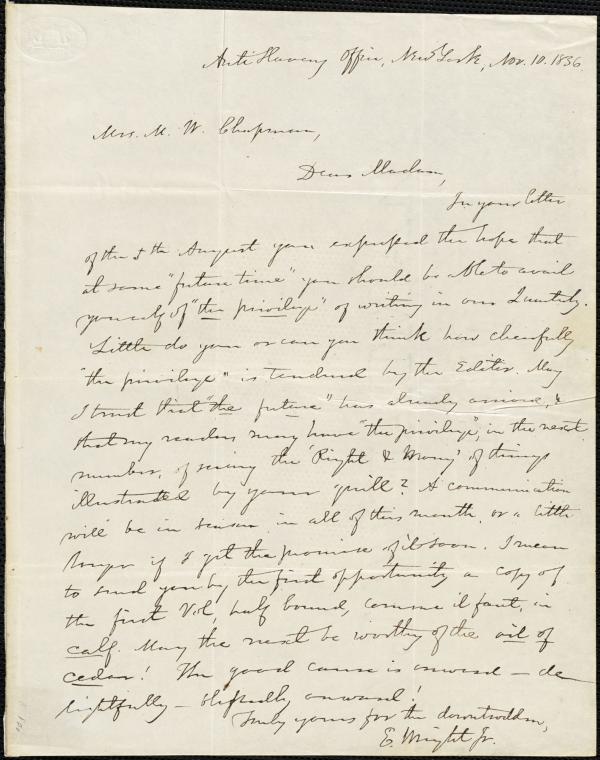 Anti Slavery Office, New York, Nov. 10. 1836.
Mrs. M. W. Chapman,
Dear Madam,
In your letter
of the 5th August you expressed the hope that
at some "future time" you should be able to avail
yourself of "the privilege" of writing in our Quarterly.
Little do you or can you think how cheerfully
"the privilege" is tendered by the Editor. May
I trust that "the future" has already arrived, &
that my readers may have "the privilege", in the next
number, of seeing the 'Right & Wrong' of things
illustrated by your quill? A communication
will be in season in all of this month, or a little
longer if I get the promise of it soon. I mean
to send you by the first opportunity a copy of
the first Vol, half bound, comme il faut, in
calf. May the next be worthy of the oil of
cedar! The good cause is onward – de
lightfully – blessedly onward!
Truly yours for the downtrodden,
E. Wright Jr.